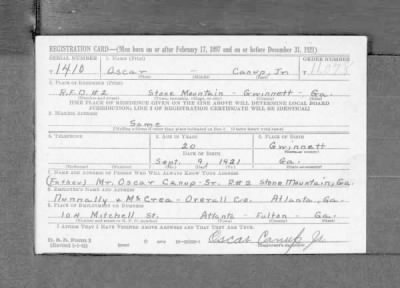 REGISTRATION CARD—(Men born on or after February 17, 1897 and on or before December 31, 1921)
SERIAL NUMBER 1. NAME (Print) ORDER NUMBER
T1410 Oscar — Canup, Jr
(First) (Middle) (Last)
2. PLACE OF RESIDENCE (Print)
R.F.D. #2 Stone Mountain - Gwinnett - Ga.
[THE PLACE OF RESIDENCE GIVEN ON THE LINE ABOVE WILL DETERMINE LOCAL BOARD
JURISDICTION; LINE 2 OF REGISTRATION CERTIFICATE WILL BE IDENTICAL]
3. MAILING ADDRESS
Same
[Mailing address if other than place indicated on line 2. If same insert word same]
4. TELEPHONE 5. AGE IN YEARS 6. PLACE OF BIRTH
20 Gwinnett
DATE OF BIRTH (Town or county)
Sept. 9, 1921 Ga.
(Exchange) (Number) (Mo.) (Day) (Yr.) (State or country)
7. NAME AND ADDRESS OF PERSON WHO WILL ALWAYS KNOW YOUR ADDRESS
(Father) Mr. Oscar Canup-Sr. R#2 Stone Mountain, Ga.
8. EMPLOYER'S NAME AND ADDRESS
Nunnally & McCrea - Overall Co. Atlanta, Ga.
9. PLACE OF EMPLOYMENT OR BUSINESS
104 Mitchell St. Atlanta - Fulton - Ga.
(Number and street or R. F. D. number) (Town) (County) (State)
I AFFIRM THAT I HAVE VERIFIED ABOVE ANSWERS AND THAT THEY ARE TRUE.
D. S. S. Form 1
Oscar Canup Jr
(Registrant's signature)